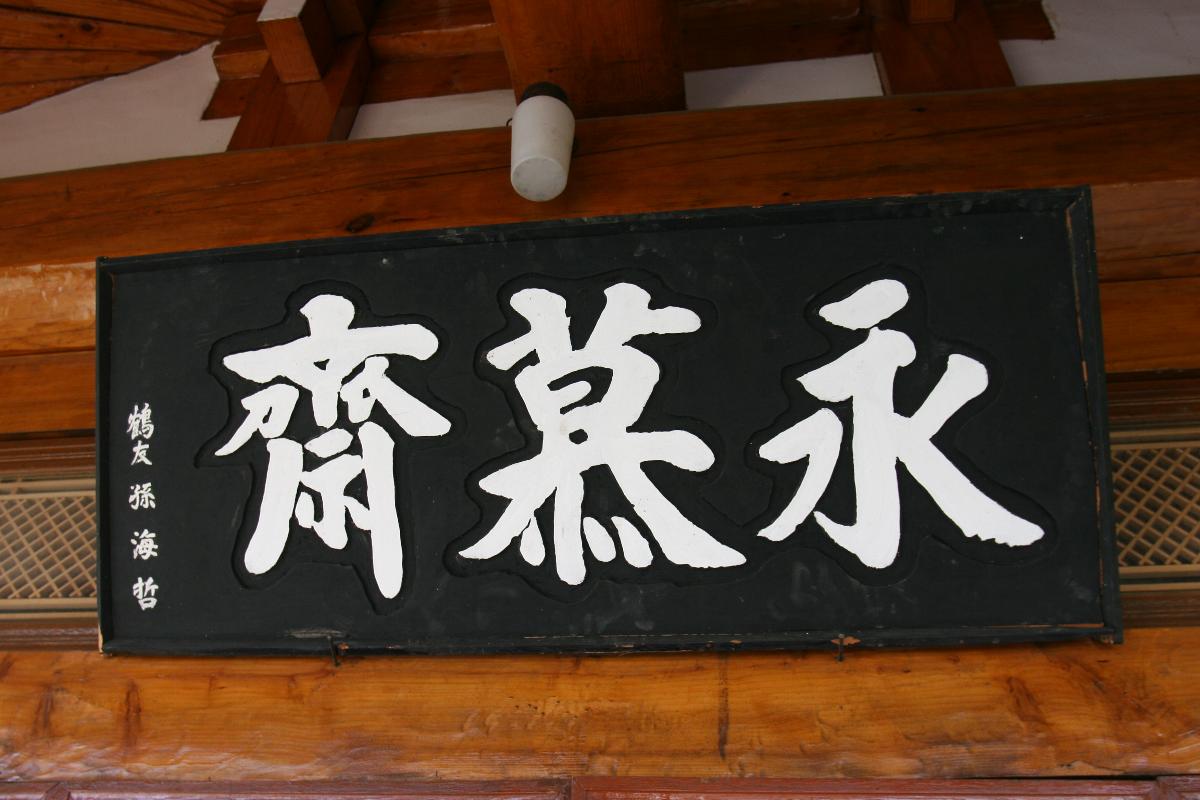 永慕齋
鶴友 孫海哲